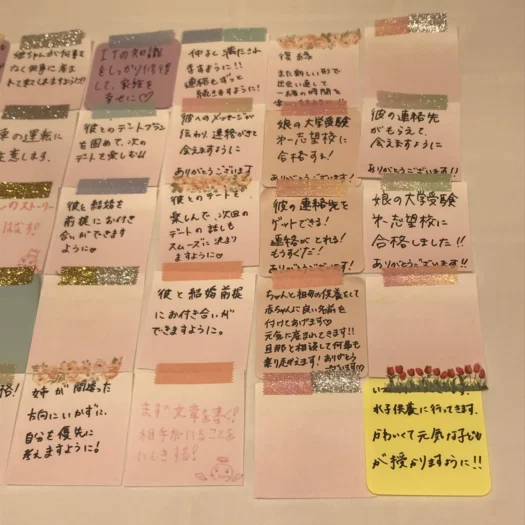 ITの知識
をしっかり習得
して、家族を
幸せに♡
仲よし 満たされ
ますように!!
連絡もずっと
続きますように!
復縁
また新しい形で
出会い直して
車の運転に
彼とのデートプラン
を固めて、次の
デートで楽しむ!!
彼へのメッセージが
伝わり、連絡がきて
会えますように
ありがとうございます
娘の大学受験
第一志望校に
合格する!
彼の連絡先
がもらえて、
会えますように
ありがとうございます!!
彼と結婚を
前提にお付き
合いができます
ように♡
彼とのデートを
楽しんで、次回の
デートの話も
スムーズに決まり
ますように♡
彼の連絡先を
ゲットできる!
連絡がとれる!
もうすぐだ!
ありがとうございます!
娘の大学受験
第一志望校に
合格しました!!
ありがとうございます!!
彼と結婚前提
にお付き合いが
できますように。
ちゃんと祖母の供養をして
赤ちゃんに良い名前を
付けてあげます♡
元気に産まれてきます!!
旦那と相談して何事も
乗り越えます!ありがとう
姉が間違った
方向にいかずに、
自分を優先に
考えますように!
まず文章を書く!
相手がいることを
水子供養に行ってきます。
かわいくて元気な子ども
が授かりますように!!